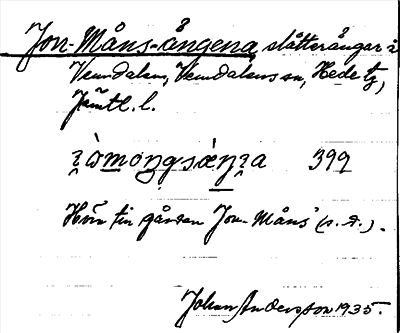 Jon-Måns-ångena, slåtterångar i
Vemdalen, Vemdalens sn, Hede tg,
Jämtl. l.
399
Hör t. gården Jon-Måns (s. d.).
Johan Andersson 1935.